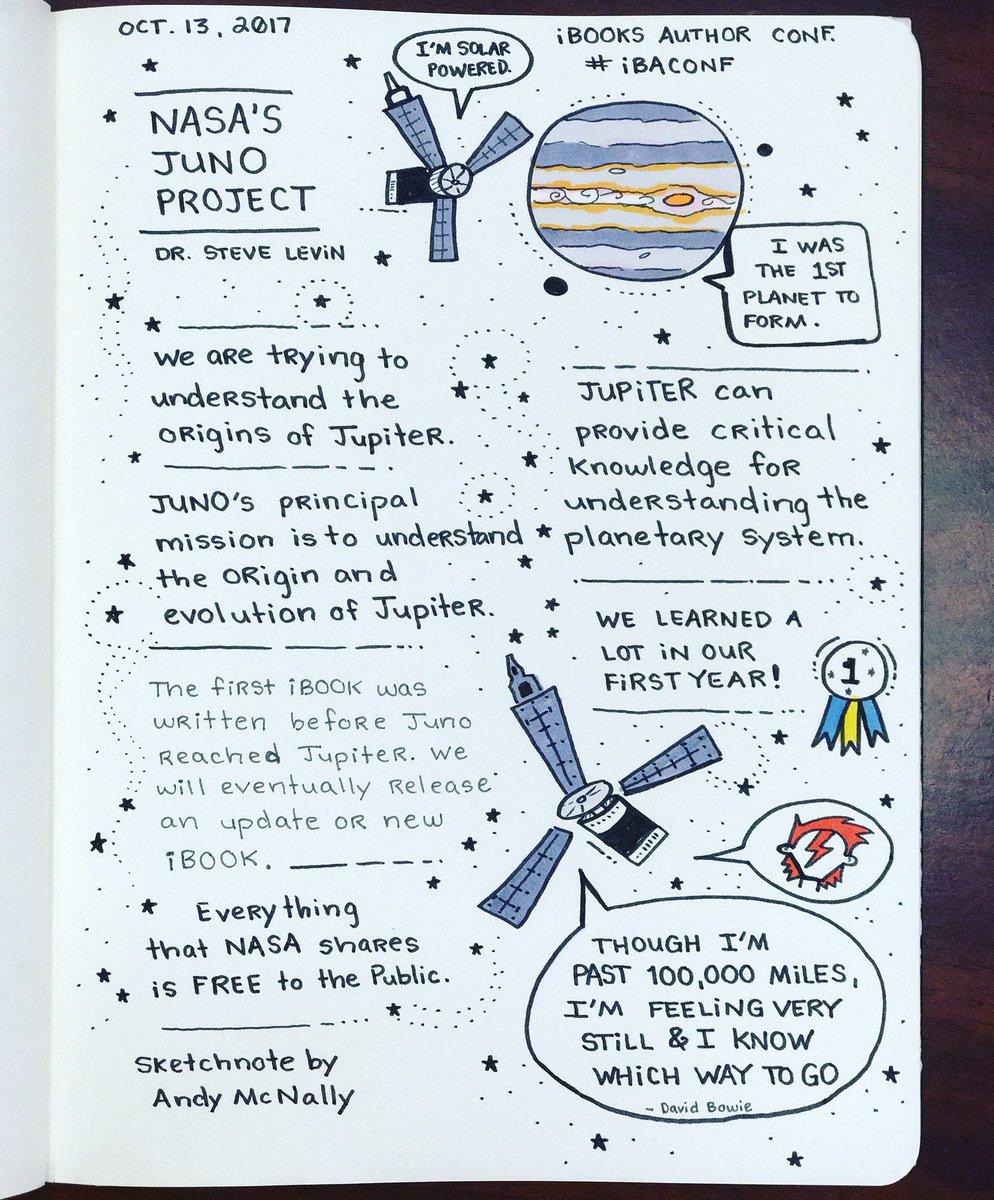 OCT. 13, 2017
iBOOKS AUTHOR CONF.
# iBACONF
I'M SOLAR
POWERED.
NASA'S
JUNO
PROJECT
DR. STEVE LEVIN
I WAS
THE 1ST
PLANET TO
FORM.
We are trying to
understand the
origins of Jupiter.
JUNO's principal
mission is to understand
the origin and
evolution of Jupiter.
The first iBOOK was
written before Juno
reached Jupiter. We
will eventually release
an update or new
iBOOK.
Everything
that NASA shares
is FREE to the Public.
Sketchnote by
Andy McNally
JUPITER can
provide critical
knowledge for
understanding the
planetary system.
WE LEARNED A
LOT IN OUR
FIRST YEAR!
1
THOUGH I'M
PAST 100,000 MILES,
I'M FEELING VERY
STILL & I KNOW
WHICH WAY TO GO
- David Bowie